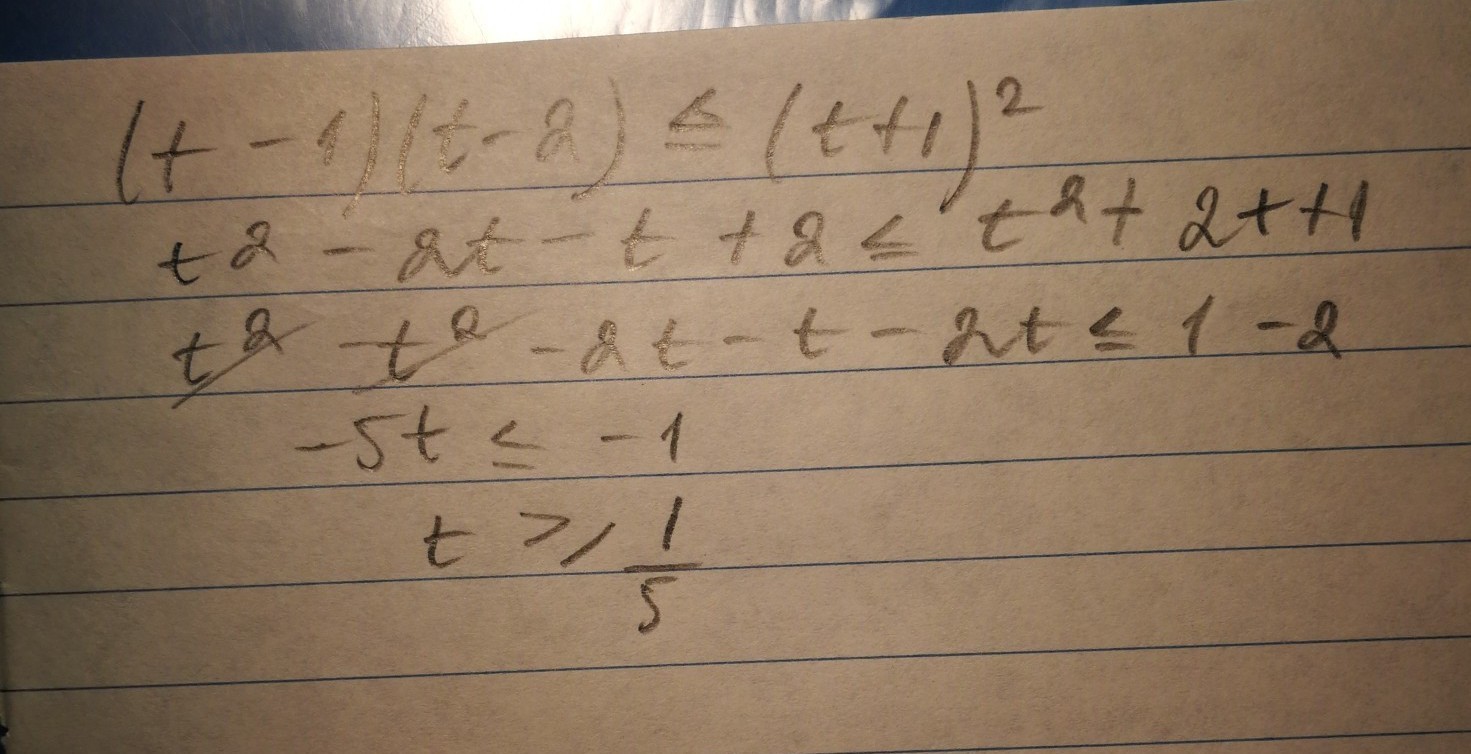 (t - 1)(t - 2) ≤ (t+1)²
t² - 2t - t + 2 ≤ t² + 2t+1
t² - t² - 2t - t - 2t ≤ 1 - 2
-5t ≤ -1
t ≥ 1/5